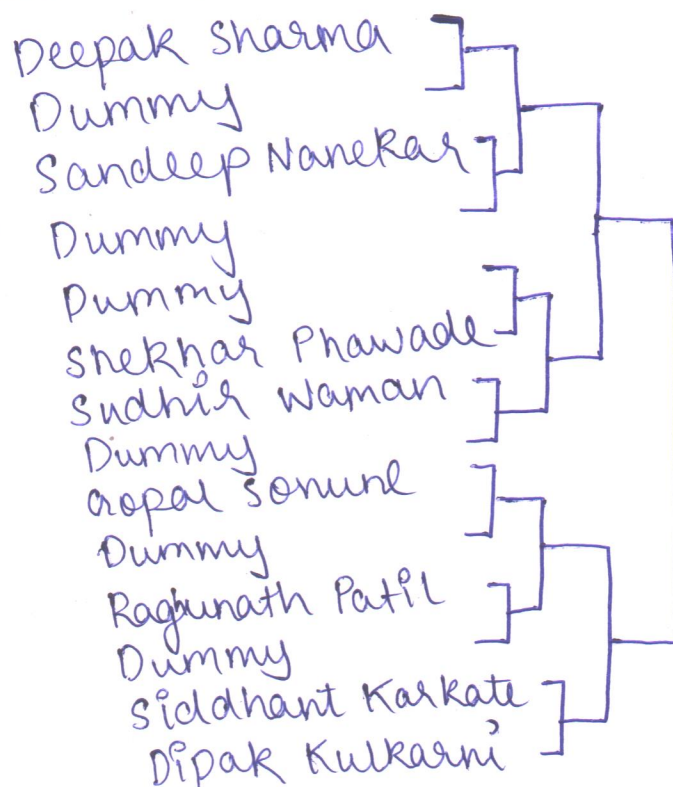 Deepak Sharma
Dummy
Sandeep Nanekar
Dummy
Dummy
Shekhar Phawade
Sudhir Waman
Dummy
Gopal Sonune
Dummy
Raghunath Patil
Dummy
Siddhant Karkate
Dipak Kulkarni